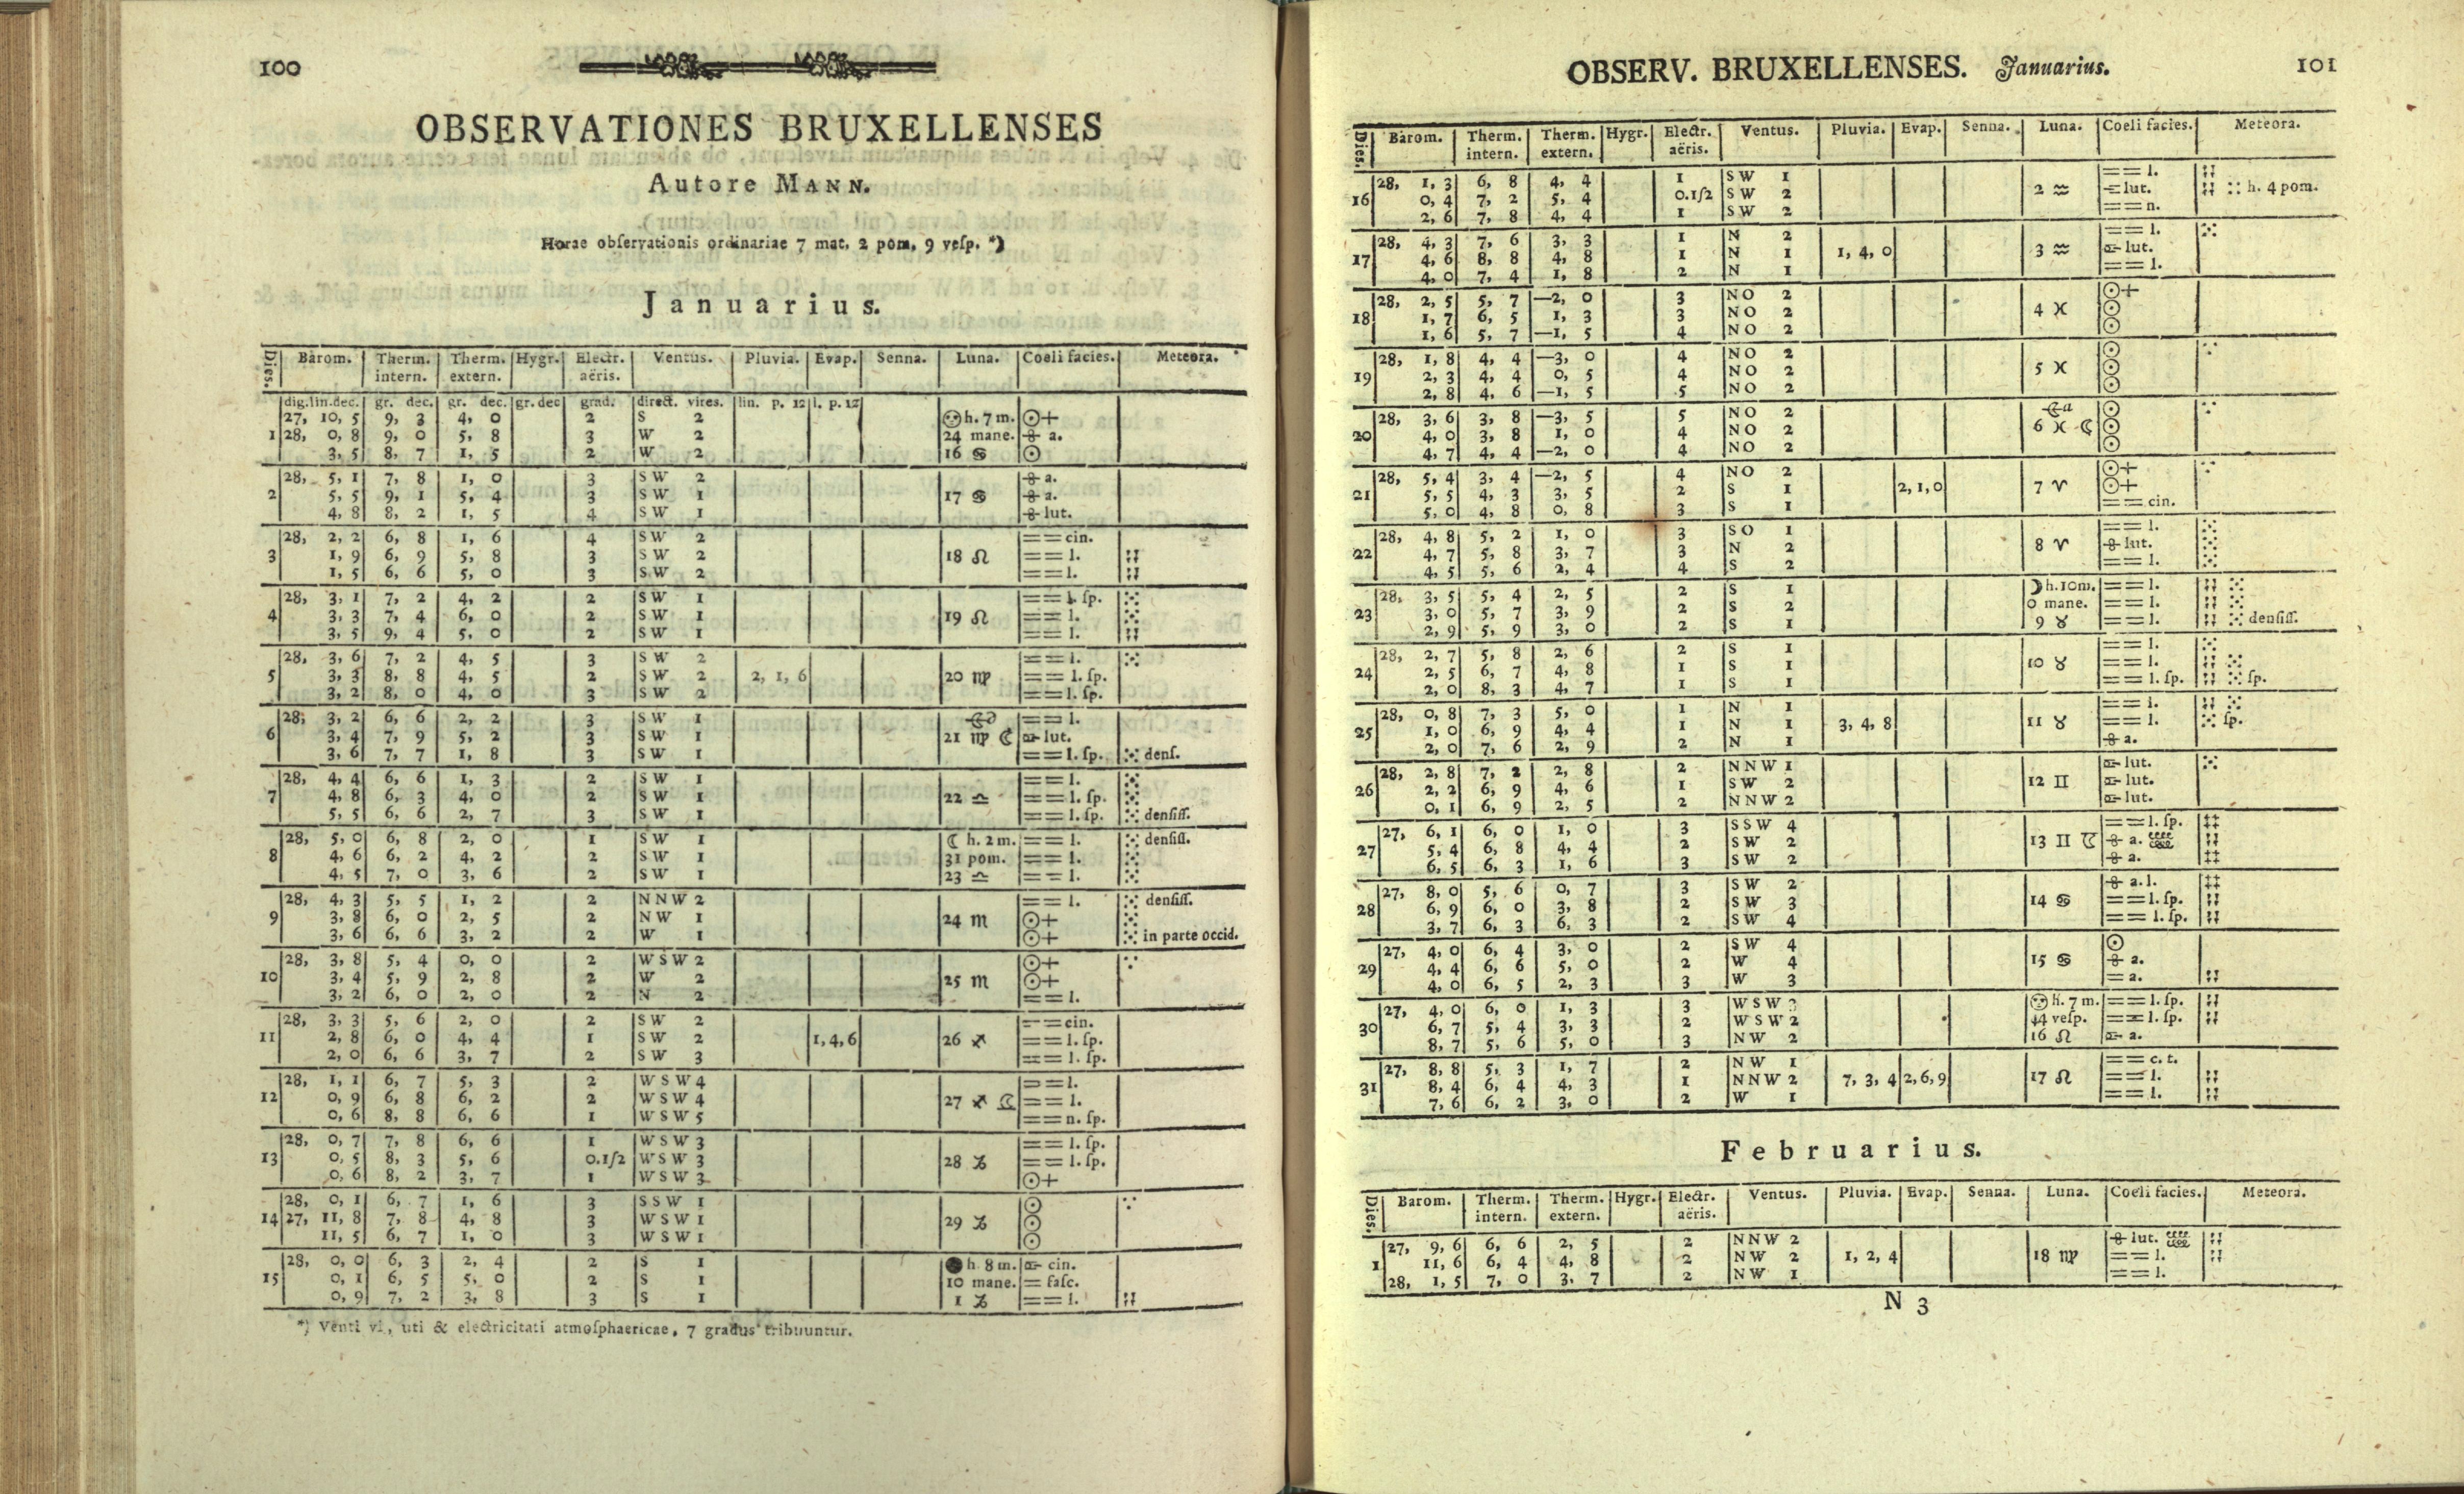 100
OBSERVATIONES BRUXELLENSES
Autore MANN.
Horae obſervationis ordinariae 7 mat. 2 pom. 9 veſp. *)
Januarius.
Dies. Barom. Therm. intern. Therm. extern. Hygr. Electr. aëris. Ventus. Pluvia. Evap. Senna. Luna. Coeli facies. Meteora.
dig.lin.dec. gr. dec. gr. dec. gr. dec grad. direct. vires. lin. p. 12 l. p. 12
27, 10, 5 9, 3 4, 0 2 S 2 h. 7 m. ☉+
1 28, 0, 8 9, 0 5, 8 3 W 2 24 mane. a.
3, 5 8, 7 1, 5 2 W 2 16 ♋ ☉
28, 5, 1 7, 8 1, 0 3 SW 2 a.
2 5, 5 9, 1 5, 4 3 SW 1 17 ♋ a.
4, 8 8, 2 1, 5 4 SW 1 lut.
28, 2, 2 6, 8 1, 6 4 SW 2 == cin.
3 1, 9 6, 9 5, 8 3 SW 2 18 ♌ == l. ⁏⁏
1, 5 6, 6 5, 0 3 SW 2 == l. ⁏⁏
28, 3, 1 7, 2 4, 2 2 SW 1 == l. ſp. ⁙
4 3, 3 7, 4 6, 0 2 SW 1 19 ♌ == l. ⁙
3, 5 9, 4 5, 0 2 SW 1 == l. ⁏⁏
28, 3, 6 7, 2 4, 5 3 SW 2 == l. ⁙
5 3, 3 8, 8 4, 5 2 SW 2 2, 1, 6 20 ♍ == l. ſp.
3, 2 8, 0 4, 0 3 SW 2 == l. ſp.
28, 3, 2 6, 6 2, 2 3 SW 1 == l.
6 3, 4 7, 9 5, 2 3 SW 1 21 ♍ ☾ lut.
3, 6 7, 7 1, 8 3 SW 1 == l. ſp. ⁙ denſ.
28, 4, 4 6, 6 1, 3 2 SW 1 == l. ⁙
7 4, 8 6, 3 4, 0 2 SW 1 22 ♎ == l. ſp. ⁙
5, 5 6, 6 2, 7 3 SW 1 == l. ſp. ⁙ denſiſſ.
28, 5, 0 6, 8 2, 0 1 SW 1 ☾ h. 2 m. == l. ⁙ denſiſſ.
8 4, 6 6, 2 4, 2 2 SW 1 31 pom. == l. ⁙
4, 5 7, 0 3, 6 2 SW 1 23 ♎ == l. ⁙
28, 4, 3 5, 5 1, 2 2 NNW 2 == l. ⁙ denſiſſ.
9 3, 8 6, 0 2, 5 2 NW 1 24 ♏ ☉+ ⁙
3, 6 6, 6 3, 2 2 W 1 ☉+ ⁙ in parte occid.
28, 3, 8 5, 4 0, 0 2 WSW 2 ☉+ ∵
10 3, 4 5, 9 2, 8 2 W 2 25 ♏ ☉+
3, 2 6, 0 2, 0 2 N 2 == l.
28, 3, 3 5, 6 2, 0 2 SW 2 == cin.
11 2, 8 6, 0 4, 4 1 SW 2 1, 4, 6 26 ♐ == l. ſp.
2, 0 6, 6 3, 7 2 SW 3 == l. ſp.
28, 1, 1 6, 7 5, 3 2 WSW 4 == l.
12 0, 9 6, 8 6, 2 2 WSW 4 27 ♐ == l.
0, 6 8, 8 6, 6 1 WSW 5 == n. ſp.
28, 0, 7 7, 8 6, 6 1 WSW 3 == l. ſp.
13 0, 5 8, 3 5, 6 0.1ſ2 WSW 3 28 ♑ == l. ſp.
0, 6 8, 2 3, 7 1 WSW 3 ☉+
28, 0, 1 6, 7 1, 6 3 SSW 1 ☉ ∵
14 27, 11, 8 7, 8 4, 8 3 WSW 1 29 ♑ ☉
11, 5 6, 7 1, 0 3 WSW 1 ☉
28, 0, 0 6, 3 2, 4 2 S 1 ● h 8 m. cin.
15 0, 1 6, 5 5, 0 2 S 1 10 mane. == faſc.
0, 9 7, 2 3, 8 3 S 1 1 ♑ == l. ⁏⁏
*) Venti vi, uti & electricitati atmoſphaericae, 7 gradus tribuuntur.
OBSERV. BRUXELLENSES. Januarius. 101
Dies. Barom. Therm. intern. Therm. extern. Hygr. Electr. aëris. Ventus. Pluvia. Evap. Senna. Luna. Coeli facies. Meteora.
28, 1, 3 6, 8 4, 4 1 SW 1 == l. ⁏⁏
16 0, 4 7, 2 5, 4 0.1ſ2 SW 2 2 ♒ lut. ⁏⁏ ∷ h. 4 pom.
2, 6 7, 8 4, 4 1 SW 2 == n.
28, 4, 3 7, 6 3, 3 1 N 2 == l. ⁙
17 4, 6 8, 8 4, 8 1 N 1 1, 4, 0 3 ♒ lut.
4, 0 7, 4 1, 8 2 N 1 == l.
28, 2, 5 5, 7 —2, 0 3 NO 2 ☉+
18 1, 7 6, 5 1, 3 3 NO 2 4 ♓ ☉
1, 6 5, 7 —1, 5 4 NO 2 ☉
28, 1, 8 4, 4 —3, 0 4 NO 2 ☉ ∵
19 2, 3 4, 4 0, 5 4 NO 2 5 ♓ ☉
2, 8 4, 6 —1, 5 5 NO 2 ☉
28, 3, 6 3, 8 —3, 5 5 NO 2 ☉ ∵
20 4, 0 3, 8 1, 0 4 NO 2 6 ♓ ☾ ☉
4, 7 4, 4 —2, 0 4 NO 2 ☉
28, 5, 4 3, 4 —2, 5 4 NO 2 ☉+ ∵
21 5, 5 4, 3 3, 5 2 S 1 2, 1, 0 7 ♈ ☉+
5, 0 4, 8 0, 8 3 S 1 == cin.
28, 4, 8 5, 2 1, 0 3 SO 1 == l. ⁙
22 4, 7 5, 8 3, 7 3 N 2 8 ♈ lut. ⁙
4, 5 5, 6 2, 4 4 S 2 == l. ⁙
28, 3, 5 5, 4 2, 5 2 S 1 ☽ h. 10m. == l. ⁏⁏ ⁙
23 3, 0 5, 7 3, 9 2 S 2 0 mane. == l. ⁏⁏ ⁙
2, 9 5, 9 3, 0 2 S 1 9 ♉ == l. ⁏⁏ ⁙ denſiſſ.
28, 2, 7 5, 8 2, 6 2 S 1 == l. ⁙
24 2, 5 6, 7 4, 8 1 S 1 10 ♉ == l. ⁏⁏ ⁙
2, 0 8, 3 4, 7 1 S 1 == l. ſp. ⁏⁏ ⁙ ſp.
28, 0, 8 7, 3 5, 0 1 N 1 == l. ⁏⁏ ⁙
25 1, 0 6, 9 4, 4 1 N 1 3, 4, 8 11 ♉ == l. ⁙ ſp.
2, 0 7, 6 2, 9 2 N 1 a.
28, 2, 8 7, 2 2, 8 2 NNW 1 lut. ⁙
26 2, 2 6, 9 4, 6 1 SW 2 12 ♊ lut.
0, 1 6, 9 2, 5 2 NNW 2 lut.
27, 6, 1 6, 0 1, 0 3 SSW 4 == l. ſp. ‡‡
27 5, 4 6, 8 4, 4 2 SW 2 13 ♊ a. ⁏⁏
6, 5 6, 3 1, 6 3 SW 2 a. ‡‡
27, 8, 0 5, 6 0, 7 3 SW 2 a. l. ‡‡
28 6, 9 6, 0 3, 8 2 SW 3 14 ♋ == l. ſp. ⁏⁏
3, 7 6, 3 6, 3 2 SW 4 == l. ſp. ⁏⁏
27, 4, 0 6, 4 3, 0 2 SW 4 ☉
29 4, 4 6, 6 5, 0 2 W 4 15 ♋ a.
4, 0 6, 5 2, 3 3 W 3 = a. ⁏⁏
27, 4, 0 6, 0 1, 3 3 WSW h. 7 m. == l. ſp. ⁏⁏
30 6, 7 5, 4 3, 3 2 WSW 2 44 veſp. == l. ſp. ⁏⁏
8, 7 5, 6 5, 0 3 NW 2 16 ♌ a.
27, 8, 8 5, 3 1, 7 2 NW 1 == c. t.
31 8, 4 6, 4 4, 3 1 NNW 2 7, 3, 4 2, 6, 9 17 ♌ == l. ⁏⁏
7, 6 6, 2 3, 0 2 W 1 == l. ⁏⁏
Februarius.
Dies. Barom. Therm. intern. Therm. extern. Hygr. Electr. aëris. Ventus. Pluvia. Evap. Senna. Luna. Coeli facies. Meteora.
27, 9, 6 6, 6 2, 5 2 NNW 2 lut. ⁏⁏
1 11, 6 6, 4 4, 8 2 NW 2 1, 2, 4 18 ♍ == l. ⁏⁏
28, 1, 5 7, 0 3, 7 2 NW 1 == l.
N 3